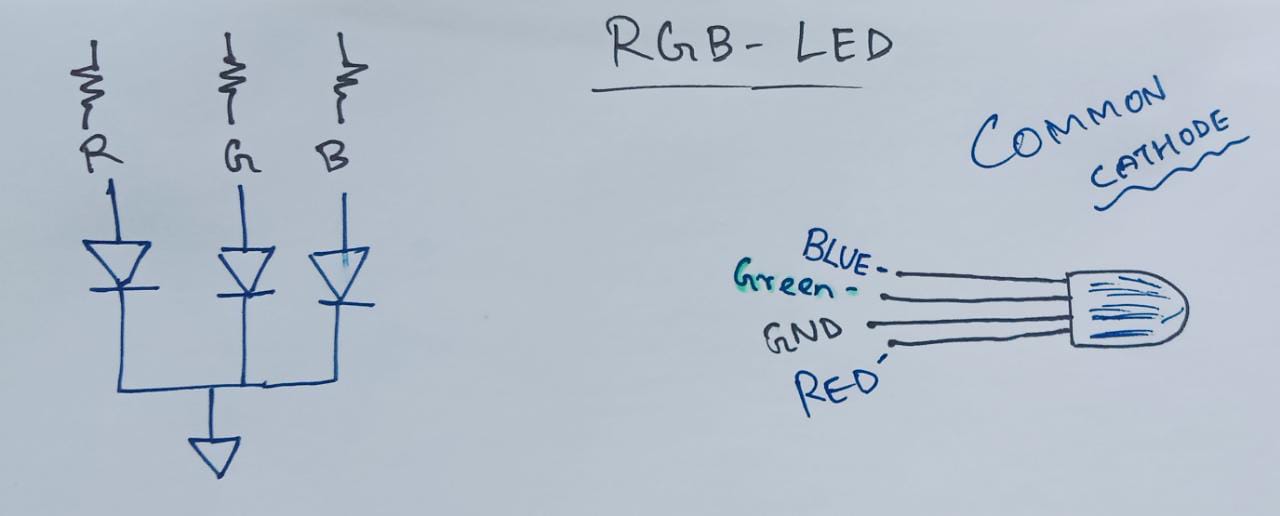 RGB- LED
COMMON
CATHODE
R G B
BLUE-
Green-
GND
RED